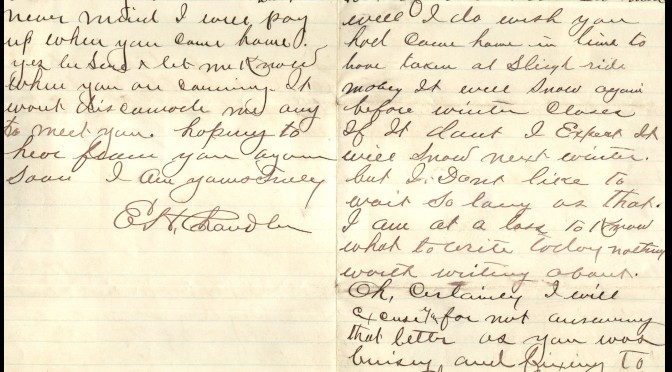 never mind I will pay
up when you come home.
yes be sure & let me Know
when you are comming It
wont discamode me any
to meet you. hoping to
hear from you again
soon I am yours Truly
E. H. Chandler
well I do wish you
had came home in time to
have taken at Sleigh ride
maby It will Snow again
before winter closes
If It dont I Expect It
will Snow next winter.
but I. Dont like to
wait so long as that.
I am at a loss to Know
what to write today nothing
worth writing about.
Oh, Certainey I will
Excuse you for not answering
that letter as you was
buisy and fixing to